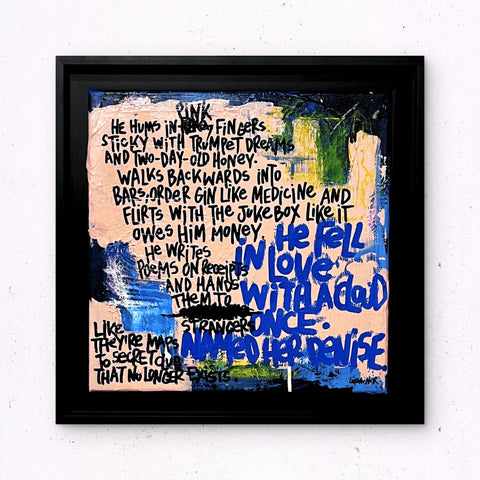 PINK
HE HUMS IN FINGERS
STICKY WITH TRUMPET DREAMS
AND TWO-DAY-OLD HONEY.
WALKS BACKWARDS INTO
BARS, ORDER GIN LIKE MEDICINE AND
FLIRTS WITH THE JUKEBOX LIKE IT
OWES HIM MONEY.
HE WRITES
POEMS ON RECEIPTS
AND HANDS
THEM TO
STRANGERS
LIKE
THEY'RE MAPS
TO SECRET CLUB
THAT NO LONGER EXISTS.
HE FELL
IN LOVE
WITH A CLOUD
ONCE.
NAMED HER DENISE.